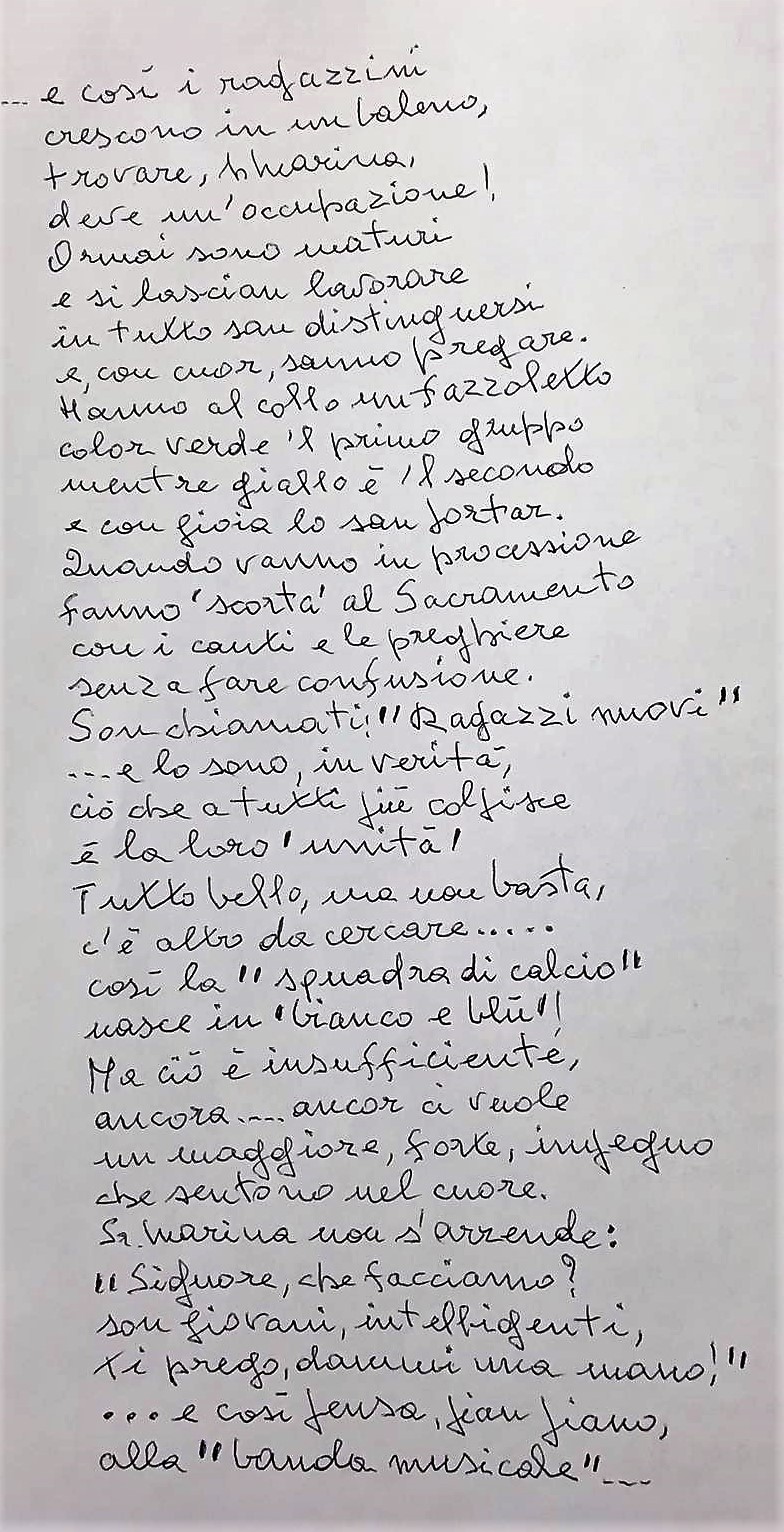 ... e così i ragazzini
crescono in un baleno,
trovare, Sr Marina,
deve un'occupazione!
Ormai sono maturi
e si lascian lavorare
in tutto san distinguersi
e, con cuor, sanno pregare.
Hanno al collo un fazzoletto
color verde 'l primo gruppo
mentre giallo è 'l secondo
e con gioia lo san portar.
Quando vanno in processione
fanno 'scorta' al Sacramento
con i canti e le preghiere
senza fare confusione.
Son chiamati: "Ragazzi nuovi"
... e lo sono, in verità,
ciò che a tutti più colpisce
è la loro 'unità'
Tutto bello, ma non basta,
c'è altro da cercare.....
così la "squadra di calcio"
nasce in "bianco e blù"!
Ma ciò è insufficiente,
ancora.... ancor ci vuole
un maggiore, forte, impegno
che sentono nel cuore.
Sr. Marina non s'arrende:
"Signore, che facciamo?
son giovani, intelligenti,
ti prego, dammi una mano!"
... e così pensa, pian piano,
alla "banda musicale"....